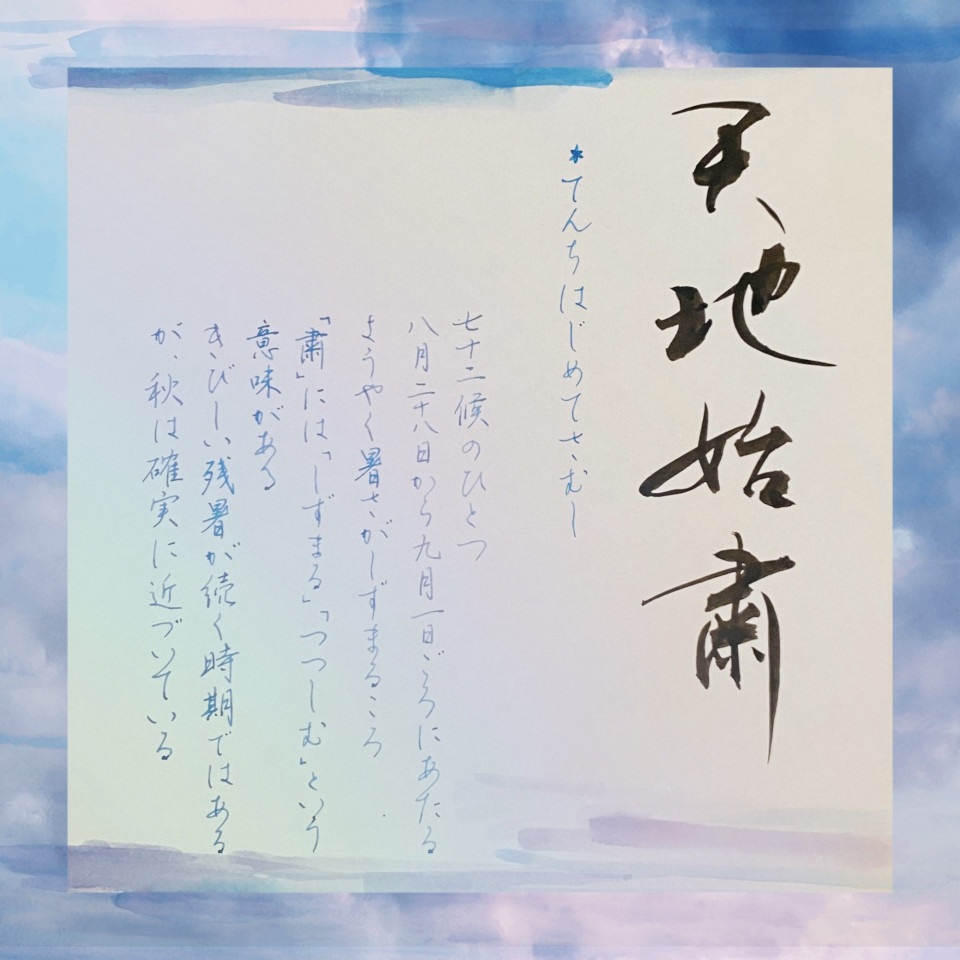 天地始粛
*てんちはじめてさむし
七十二候のひとつ
八月二十八日から九月一日ごろにあたる
ようやく暑さがしずまるころ
「粛」には「しずまる」「つつしむ」という
意味がある
きびしい残暑が続く時期ではある
が、秋は確実に近づいている